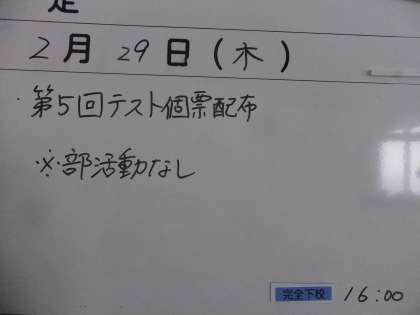 定
2月29日(木)
・第5回テスト個票配布
※部活動なし
完全下校 16:00